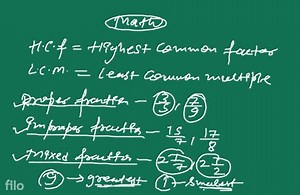 Math
H.C.f = Highest common factor
L.C.M. = Least common multiple
proper fraction – 3/5, 7/9
Improper fraction – 15/7, 17/8
mixed fraction – 2 7/7, 2 7/2
9 → greatest 1 → smallest
filo